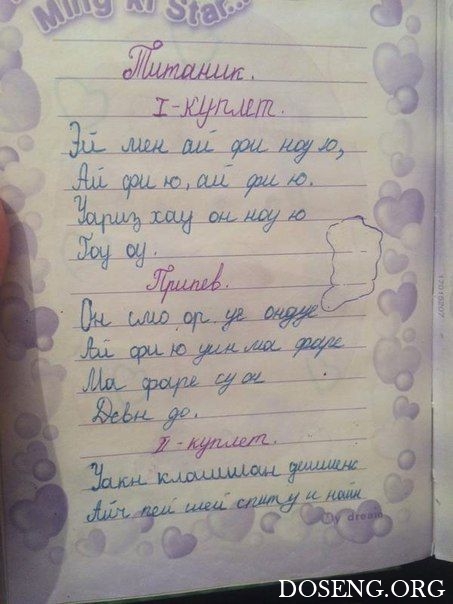 Ming xi Star...
Титаник.
I-куплет.
Эй мен ай фи ноу ю,
Ай фи ю, ай фи ю.
Уариз хау он ноу ю
Гоу оу.
Припев.
Он смо ор уе ондуе
Ай фи ю уин ма фаре
Ма фаре су он
Дєвн до.
II-куплет.
Уакн клашшан дишшенс
Айч пей шей спит у и найн
My dream
17015207
DOSENG.ORG